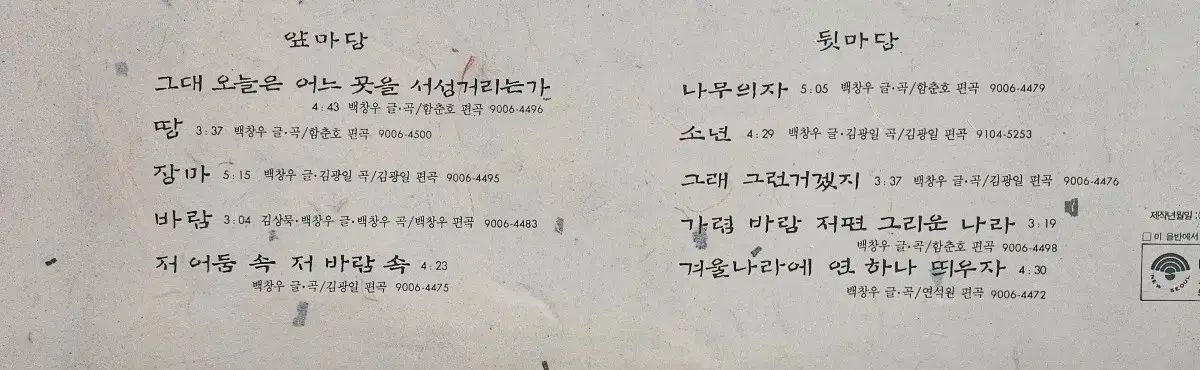 앞마당
그대 오늘은 어느 곳을 서성거리는가
4:43 백창우 글·곡/함춘호 편곡 9006-4496
땅 3:37 백창우 글·곡/함춘호 편곡 9006-4500
장마 5:15 백창우 글·김광일 곡/김광일 편곡 9006-4495
바람 3:04 김상묵·백창우 글·백창우 곡/백창우 편곡 9006-4483
저 어둠 속 저 바람 속 4:23
백창우 글·곡/김광일 편곡 9006-4475
뒷마당
나무의자 5:05 백창우 글·곡/함춘호 편곡 9006-4479
소년 4:29 백창우 글·김광일 곡/김광일 편곡 9104-5253
그래 그런거겠지 3:37 백창우 글·곡/김광일 편곡 9006-4476
가령 바람 저편 그리운 나라 3:19
백창우 글·곡/함춘호 편곡 9006-4498
겨울나라에 연 하나 띄우자 4:30
백창우 글·곡/연석원 편곡 9006-4472
제작년월일:
□ 이 음반에서
NEW SEOUL